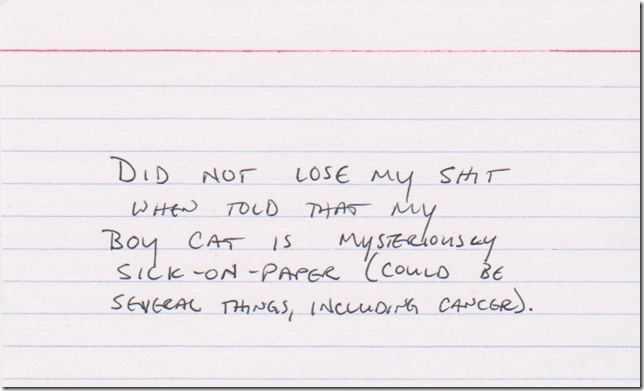 DID NOT LOSE MY SHIT
WHEN TOLD THAT MY
BOY CAT IS MYSTERIOUSLY
SICK-ON-PAPER (COULD BE
SEVERAL THINGS, INCLUDING CANCER).